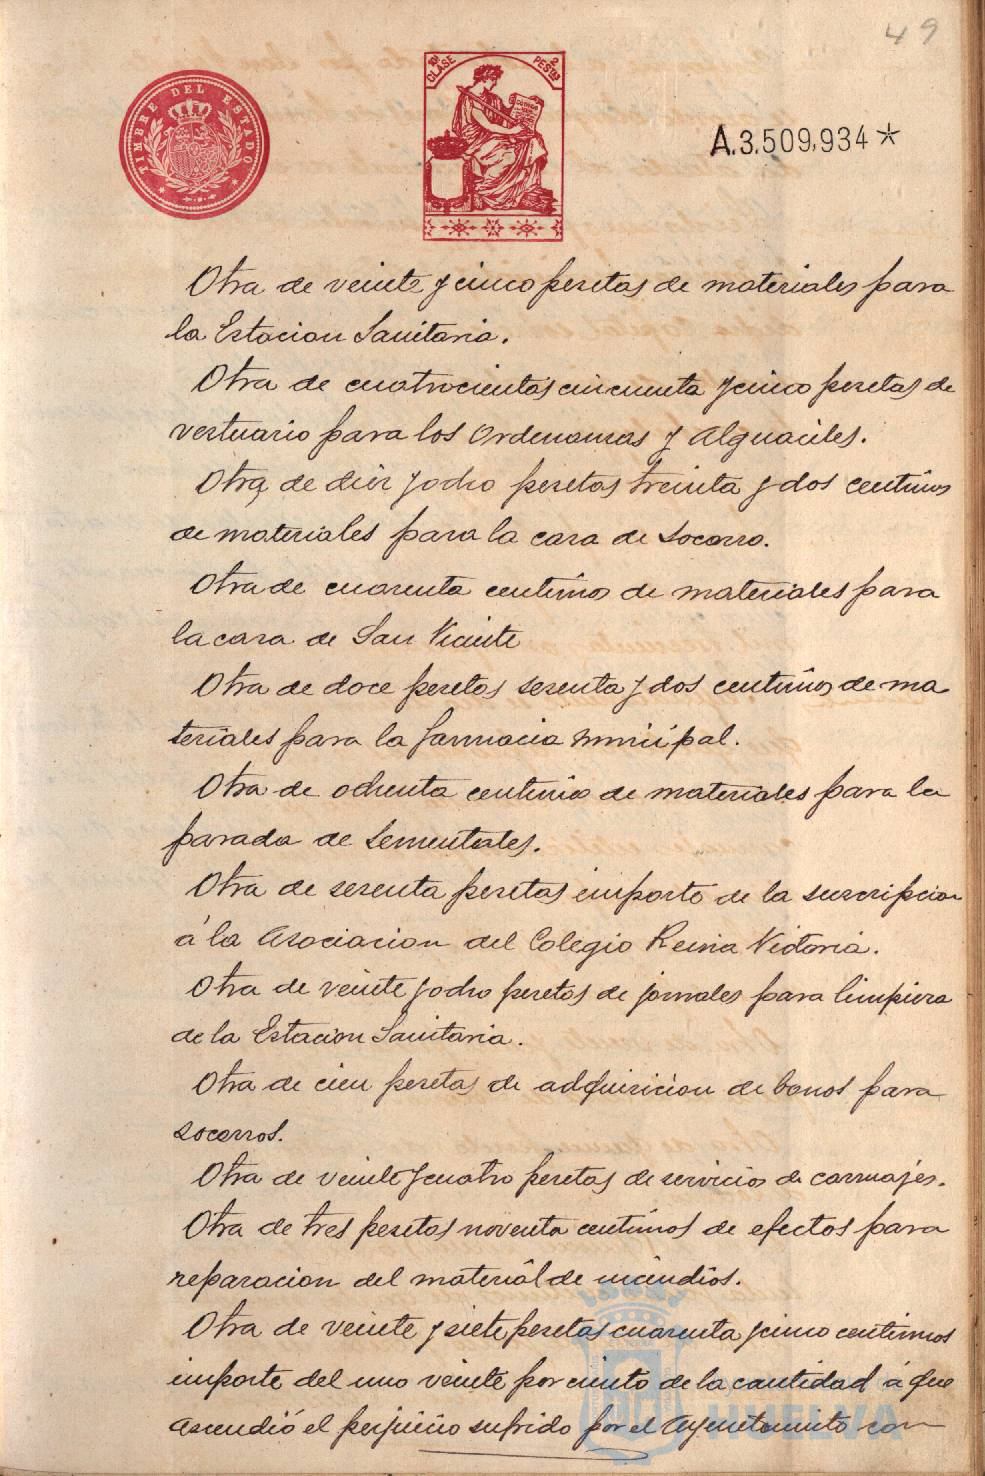 49
TIMBRE DEL ESTADO
10ª CLASE 2 PESTAS
A.3.509,934*
Otra de veinte y cinco pesetas de materiales para
la Estacion Sanitaria.
Otra de cuatrocientas cincuenta y cinco pesetas de
vestuario para los Ordenanzas y Alguaciles.
Otra de diez y ocho pesetas treinta y dos centimos
de materiales para la casa de Socorro.
Otra de cuarenta centimos de materiales para
la casa de San Vicente
Otra de doce pesetas sesenta y dos centimos de ma
teriales para la farmacia municipal.
Otra de ochenta centimos de materiales para la
parada de Sementales.
Otra de sesenta pesetas importe de la suscripcion
á la Asociacion del Colegio Reina Victoria.
Otra de veinte y ocho pesetas de jornales para limpieza
de la Estacion Sanitaria.
Otra de cien pesetas de adquisicion de bonos para
socorros.
Otra de veinte y cuatro pesetas de servicios de carruajes.
Otra de tres pesetas noventa centimos de efectos para
reparacion del material de incendios.
Otra de veinte y siete pesetas cuarenta y cinco centimos
importe del uno veinte por ciento de la cantidad á que
ascendió el perjuicio sufrido por el Ayuntamiento con
HUELVA